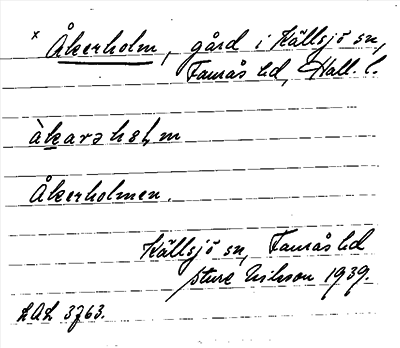 × Åkerholm, gård i Källsjö sn,
Faurås hd, Hall. l.
Åkerholmen.
Källsjö sn, Faurås hd
Sture Nilsson 1939.
LAL 3763.